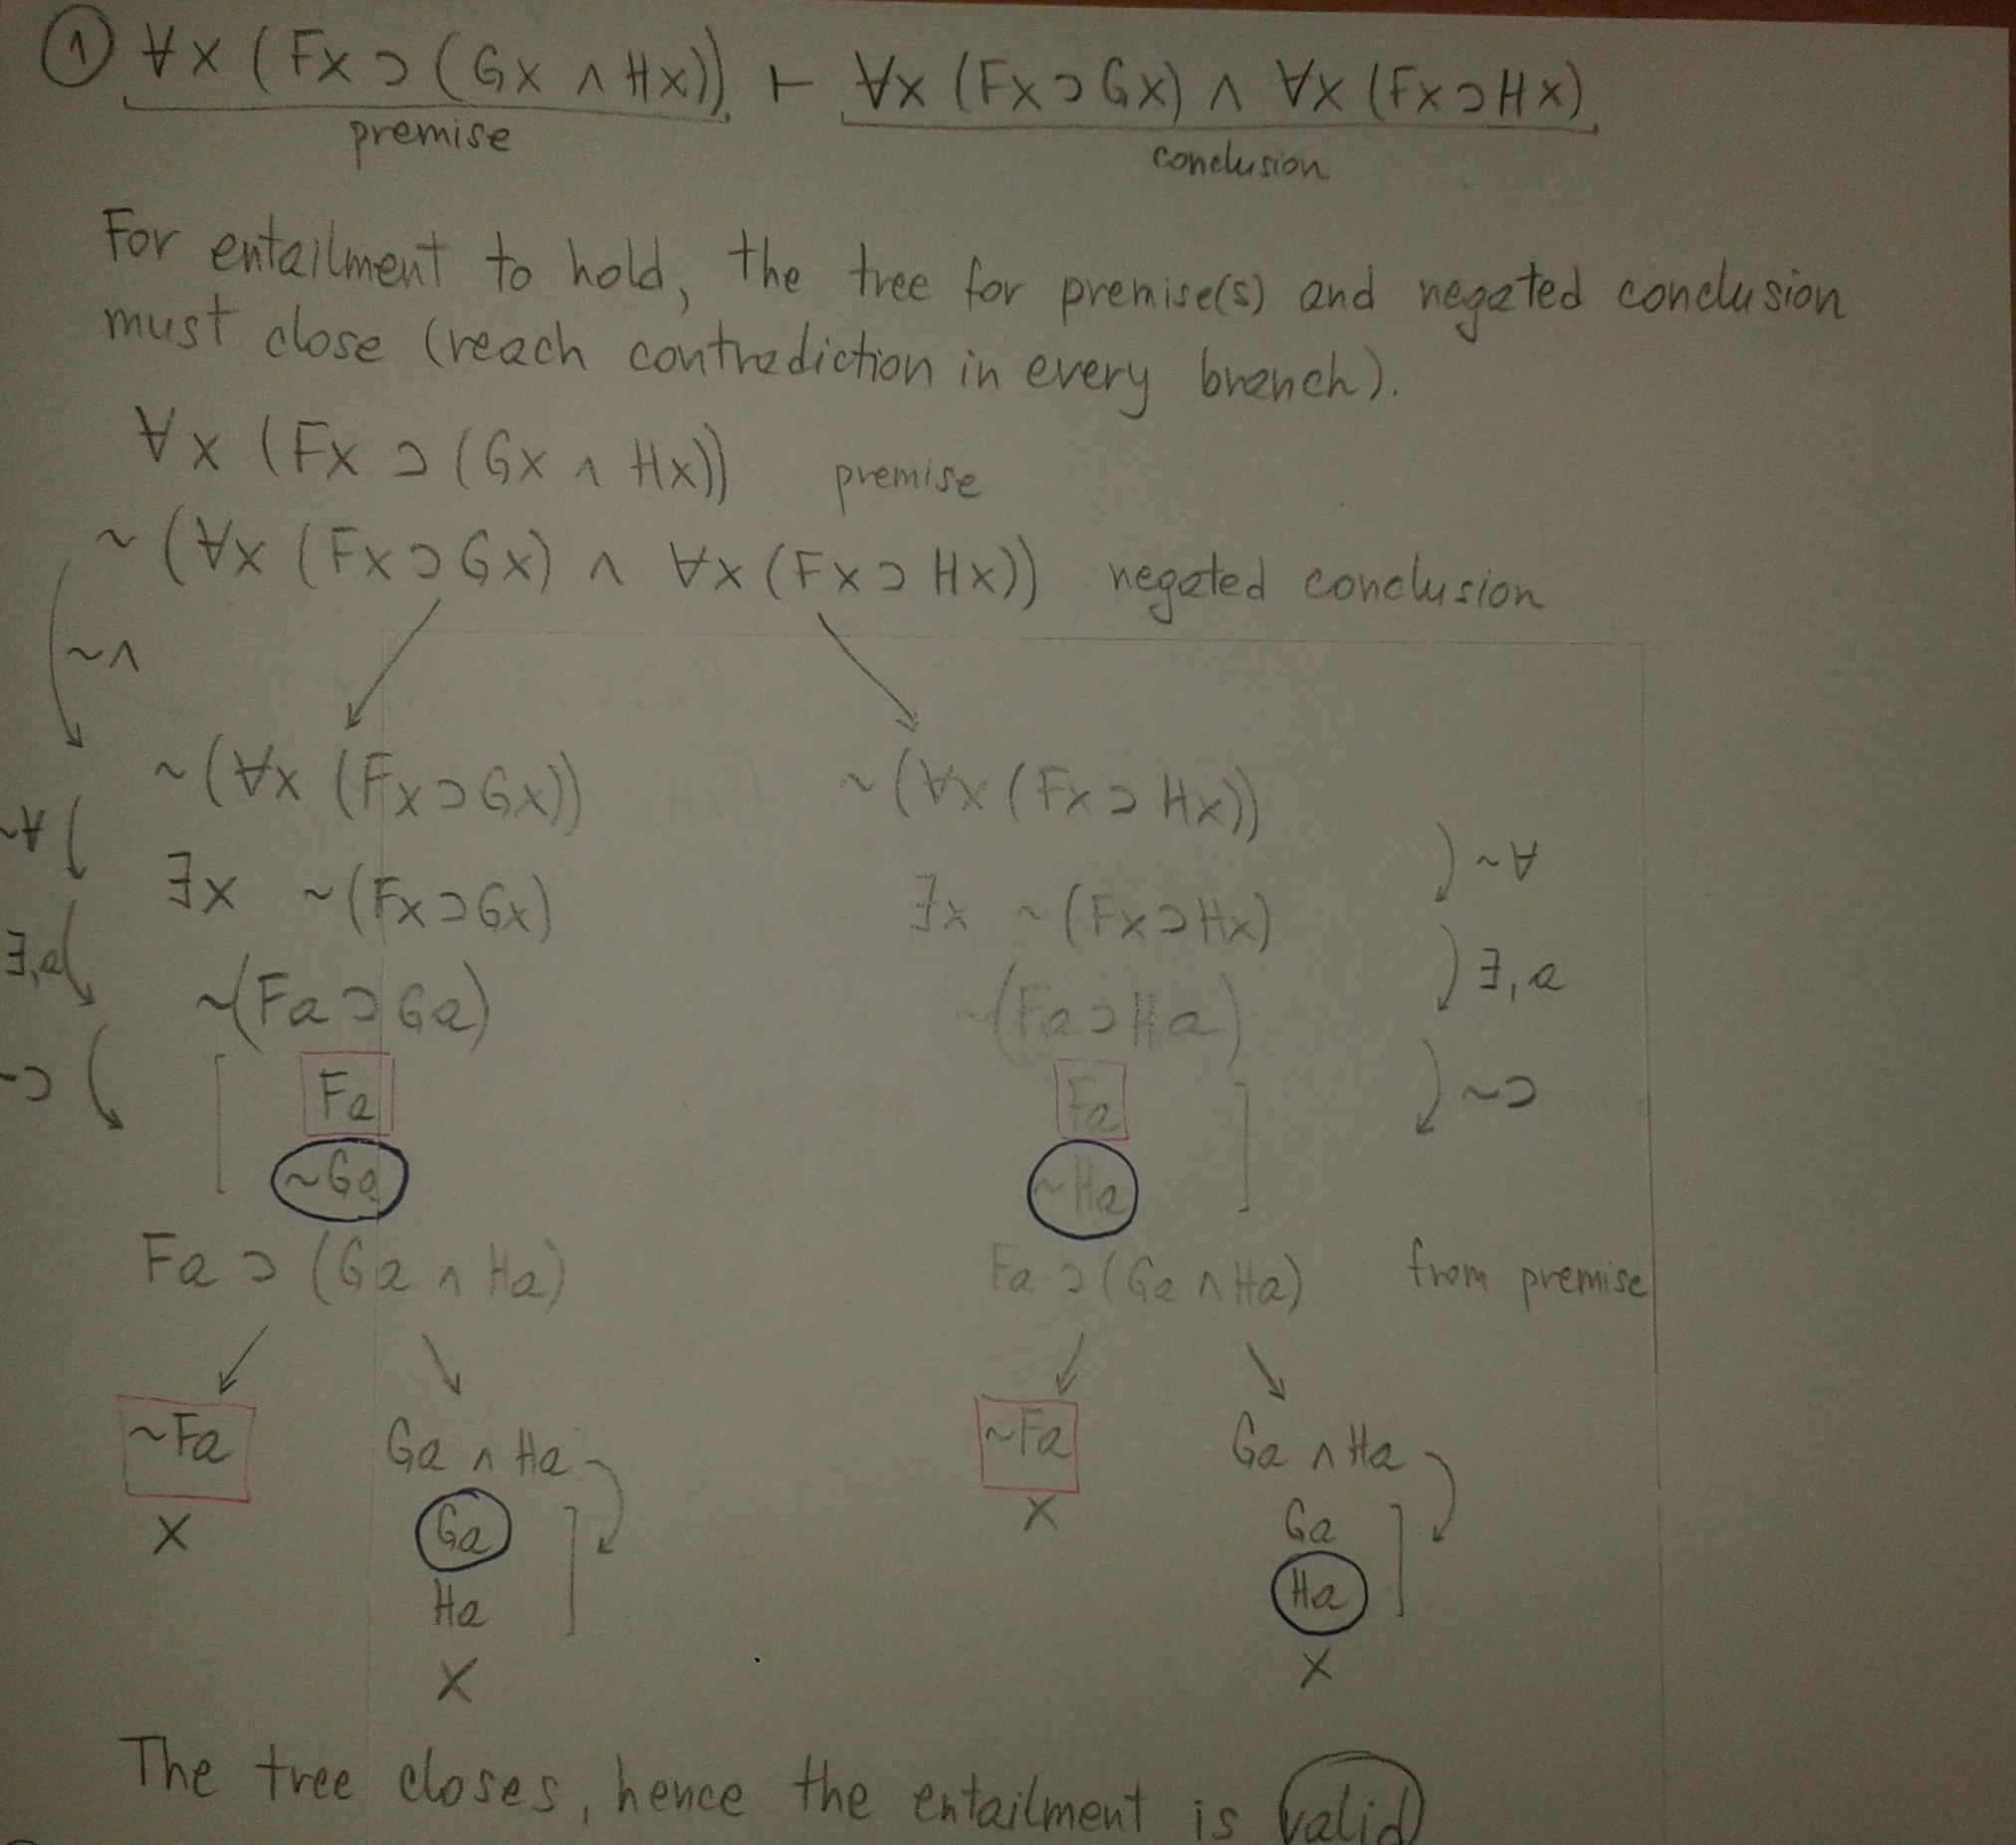 ① ∀x (Fx ⊃ (Gx ∧ Hx)) ⊢ ∀x (Fx ⊃ Gx) ∧ ∀x (Fx ⊃ Hx)
premise conclusion
For entailment to hold, the tree for premise(s) and negated conclusion
must close (reach contradiction in every branch).
∀x (Fx ⊃ (Gx ∧ Hx)) premise
~ (∀x (Fx ⊃ Gx) ∧ ∀x (Fx ⊃ Hx)) negated conclusion
~∧
~(∀x (Fx ⊃ Gx)) ~(∀x (Fx ⊃ Hx))
~∀ ~∀
∃x ~(Fx ⊃ Gx) ∃x ~(Fx ⊃ Hx)
∃,a ∃,a
~(Fa ⊃ Ga) ~(Fa ⊃ Ha)
~⊃ Fa Fa ~⊃
~Ga ~Ha
Fa ⊃ (Ga ∧ Ha) Fa ⊃ (Ga ∧ Ha) from premise
~Fa Ga ∧ Ha ~Fa Ga ∧ Ha
X Ga X Ga
Ha Ha
X X
The tree closes, hence the entailment is valid